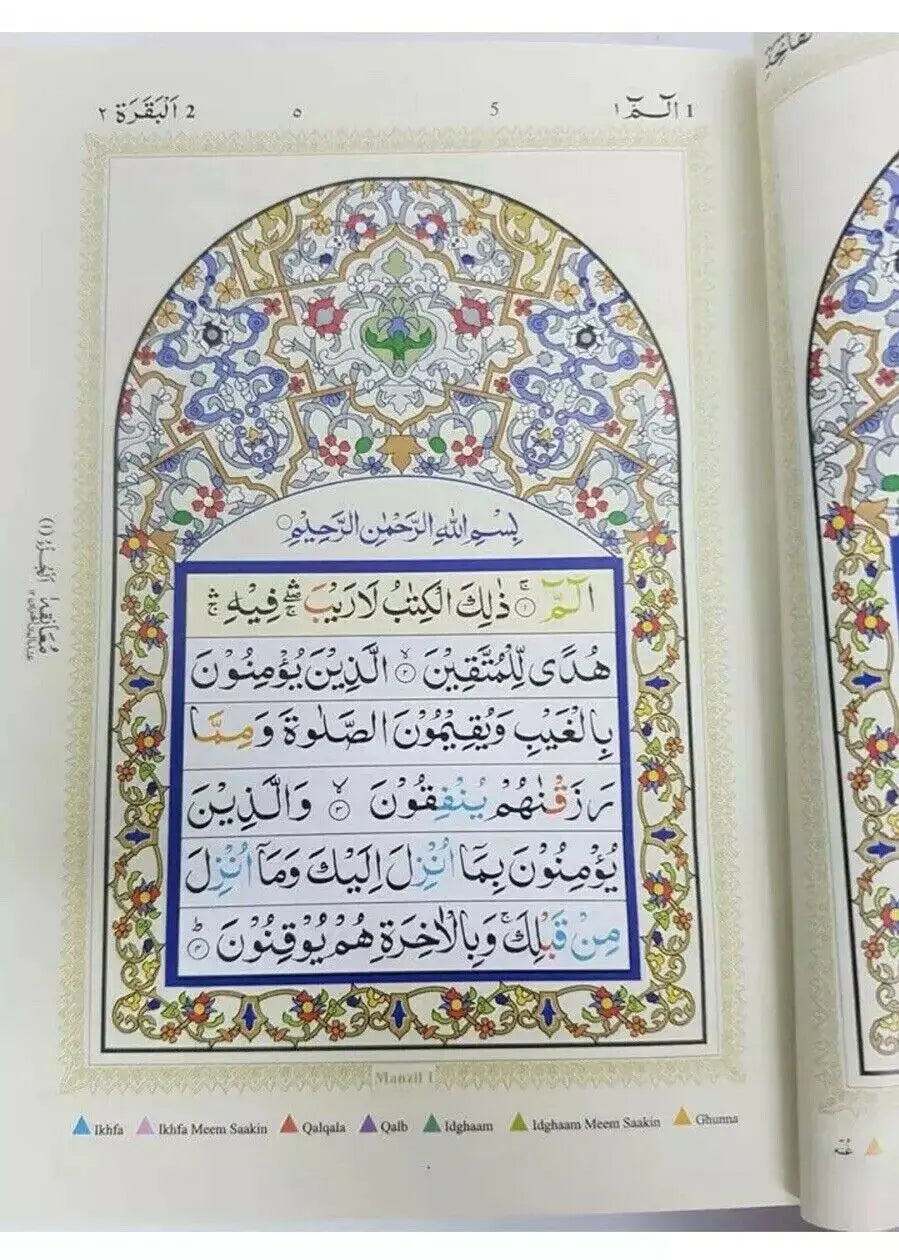 1 الٓـمّٓ ١ 5 ٥ 2 اَلْبَقَرَة ٢
بِسْمِ اللّٰهِ الرَّحْمٰنِ الرَّحِيْمِ
الٓـمّٓ ۚ ۝١ ذٰلِكَ الْكِتٰبُ لَا رَيْبَ ۛۖۚ فِيْهِ ۛۚ
هُدًى لِّلْمُتَّقِيْنَ ۙ ۝٢ الَّذِيْنَ يُؤْمِنُوْنَ
بِالْغَيْبِ وَيُقِيْمُوْنَ الصَّلٰوةَ وَمِمَّا
رَزَقْنٰهُمْ يُنْفِقُوْنَ ۙ ۝٣ وَالَّذِيْنَ
يُؤْمِنُوْنَ بِمَآ اُنْزِلَ اِلَيْكَ وَمَآ اُنْزِلَ
مِنْ قَبْلِكَ ۚ وَبِالْاٰخِرَةِ هُمْ يُوْقِنُوْنَ ؕ ۝٤
Manzil 1
Ikhfa Ikhfa Meem Saakin Qalqala Qalb Idghaam Idghaam Meem Saakin Ghunna
غُنّه